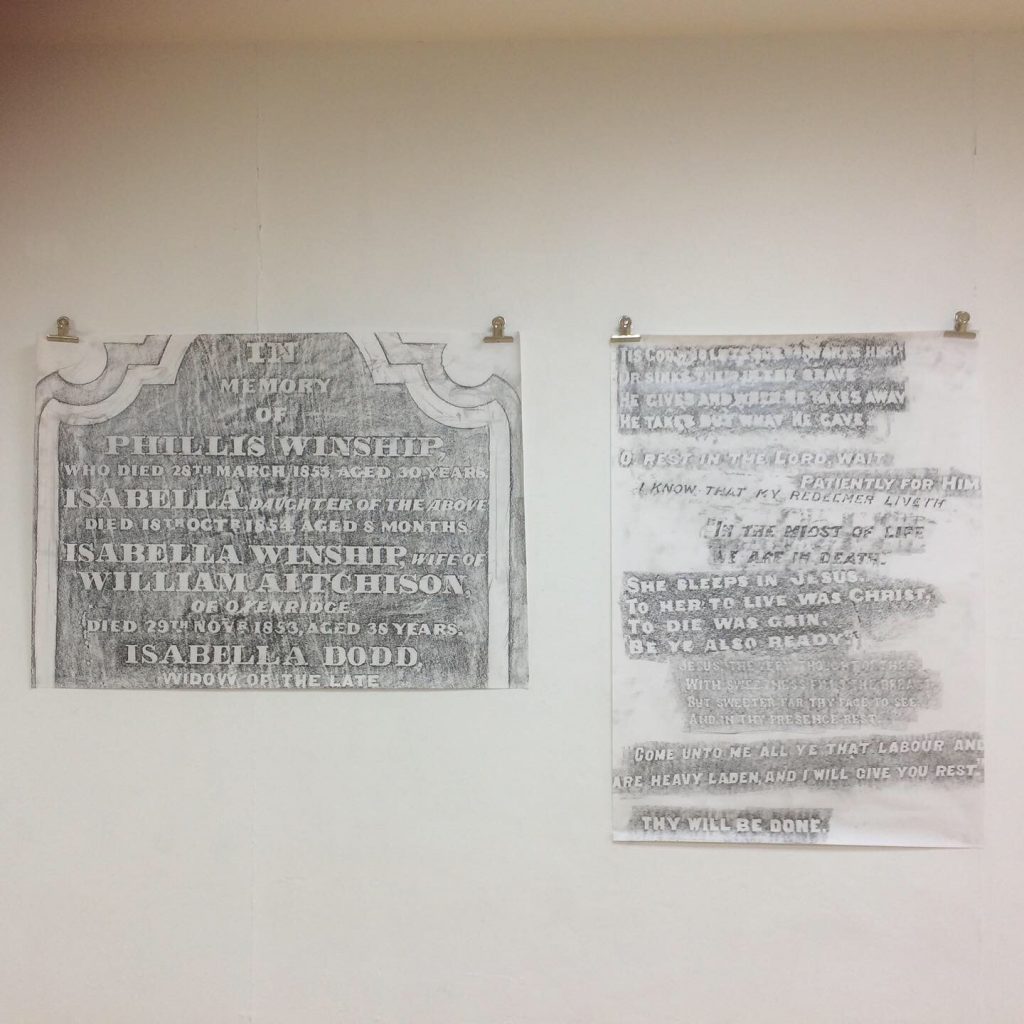 IN
MEMORY
OF
PHILLIS WINSHIP,
WHO DIED 28TH MARCH, 1853, AGED, 30 YEARS.
ISABELLA, DAUGHTER OF THE ABOVE
DIED 18TH OCTR 1854, AGED 8 MONTHS
ISABELLA WINSHIP, WIFE OF
WILLIAM AITCHISON,
OF OXENRIDGE
DIED 29TH NOVR 1853, AGED 38 YEARS.
ISABELLA DODD,
WIDOW OF THE LATE
TIS GOD HIGH
OR SINKS THE GRAVE
HE GIVES AND WHEN HE TAKES AWAY
HE TAKES BUT WHAT HE GAVE.
O REST IN THE LORD, WAIT
PATIENTLY FOR HIM
I KNOW THAT MY REDEEMER LIVETH
"IN THE MIDST OF LIFE
WE ARE IN DEATH.
SHE SLEEPS IN JESUS.
TO HER TO LIVE WAS CHRIST,
TO DIE WAS GAIN.
"BE YE ALSO READY"
JESUS THE VERY THOUGHT OF THEE
WITH SWEETNESS
BUT SWEETER FAR THY FACE TO SEE
AND IN THY PRESENCE REST.
"COME UNTO ME ALL YE THAT LABOUR AND
ARE HEAVY LADEN, AND I WILL GIVE YOU REST."
THY WILL BE DONE.